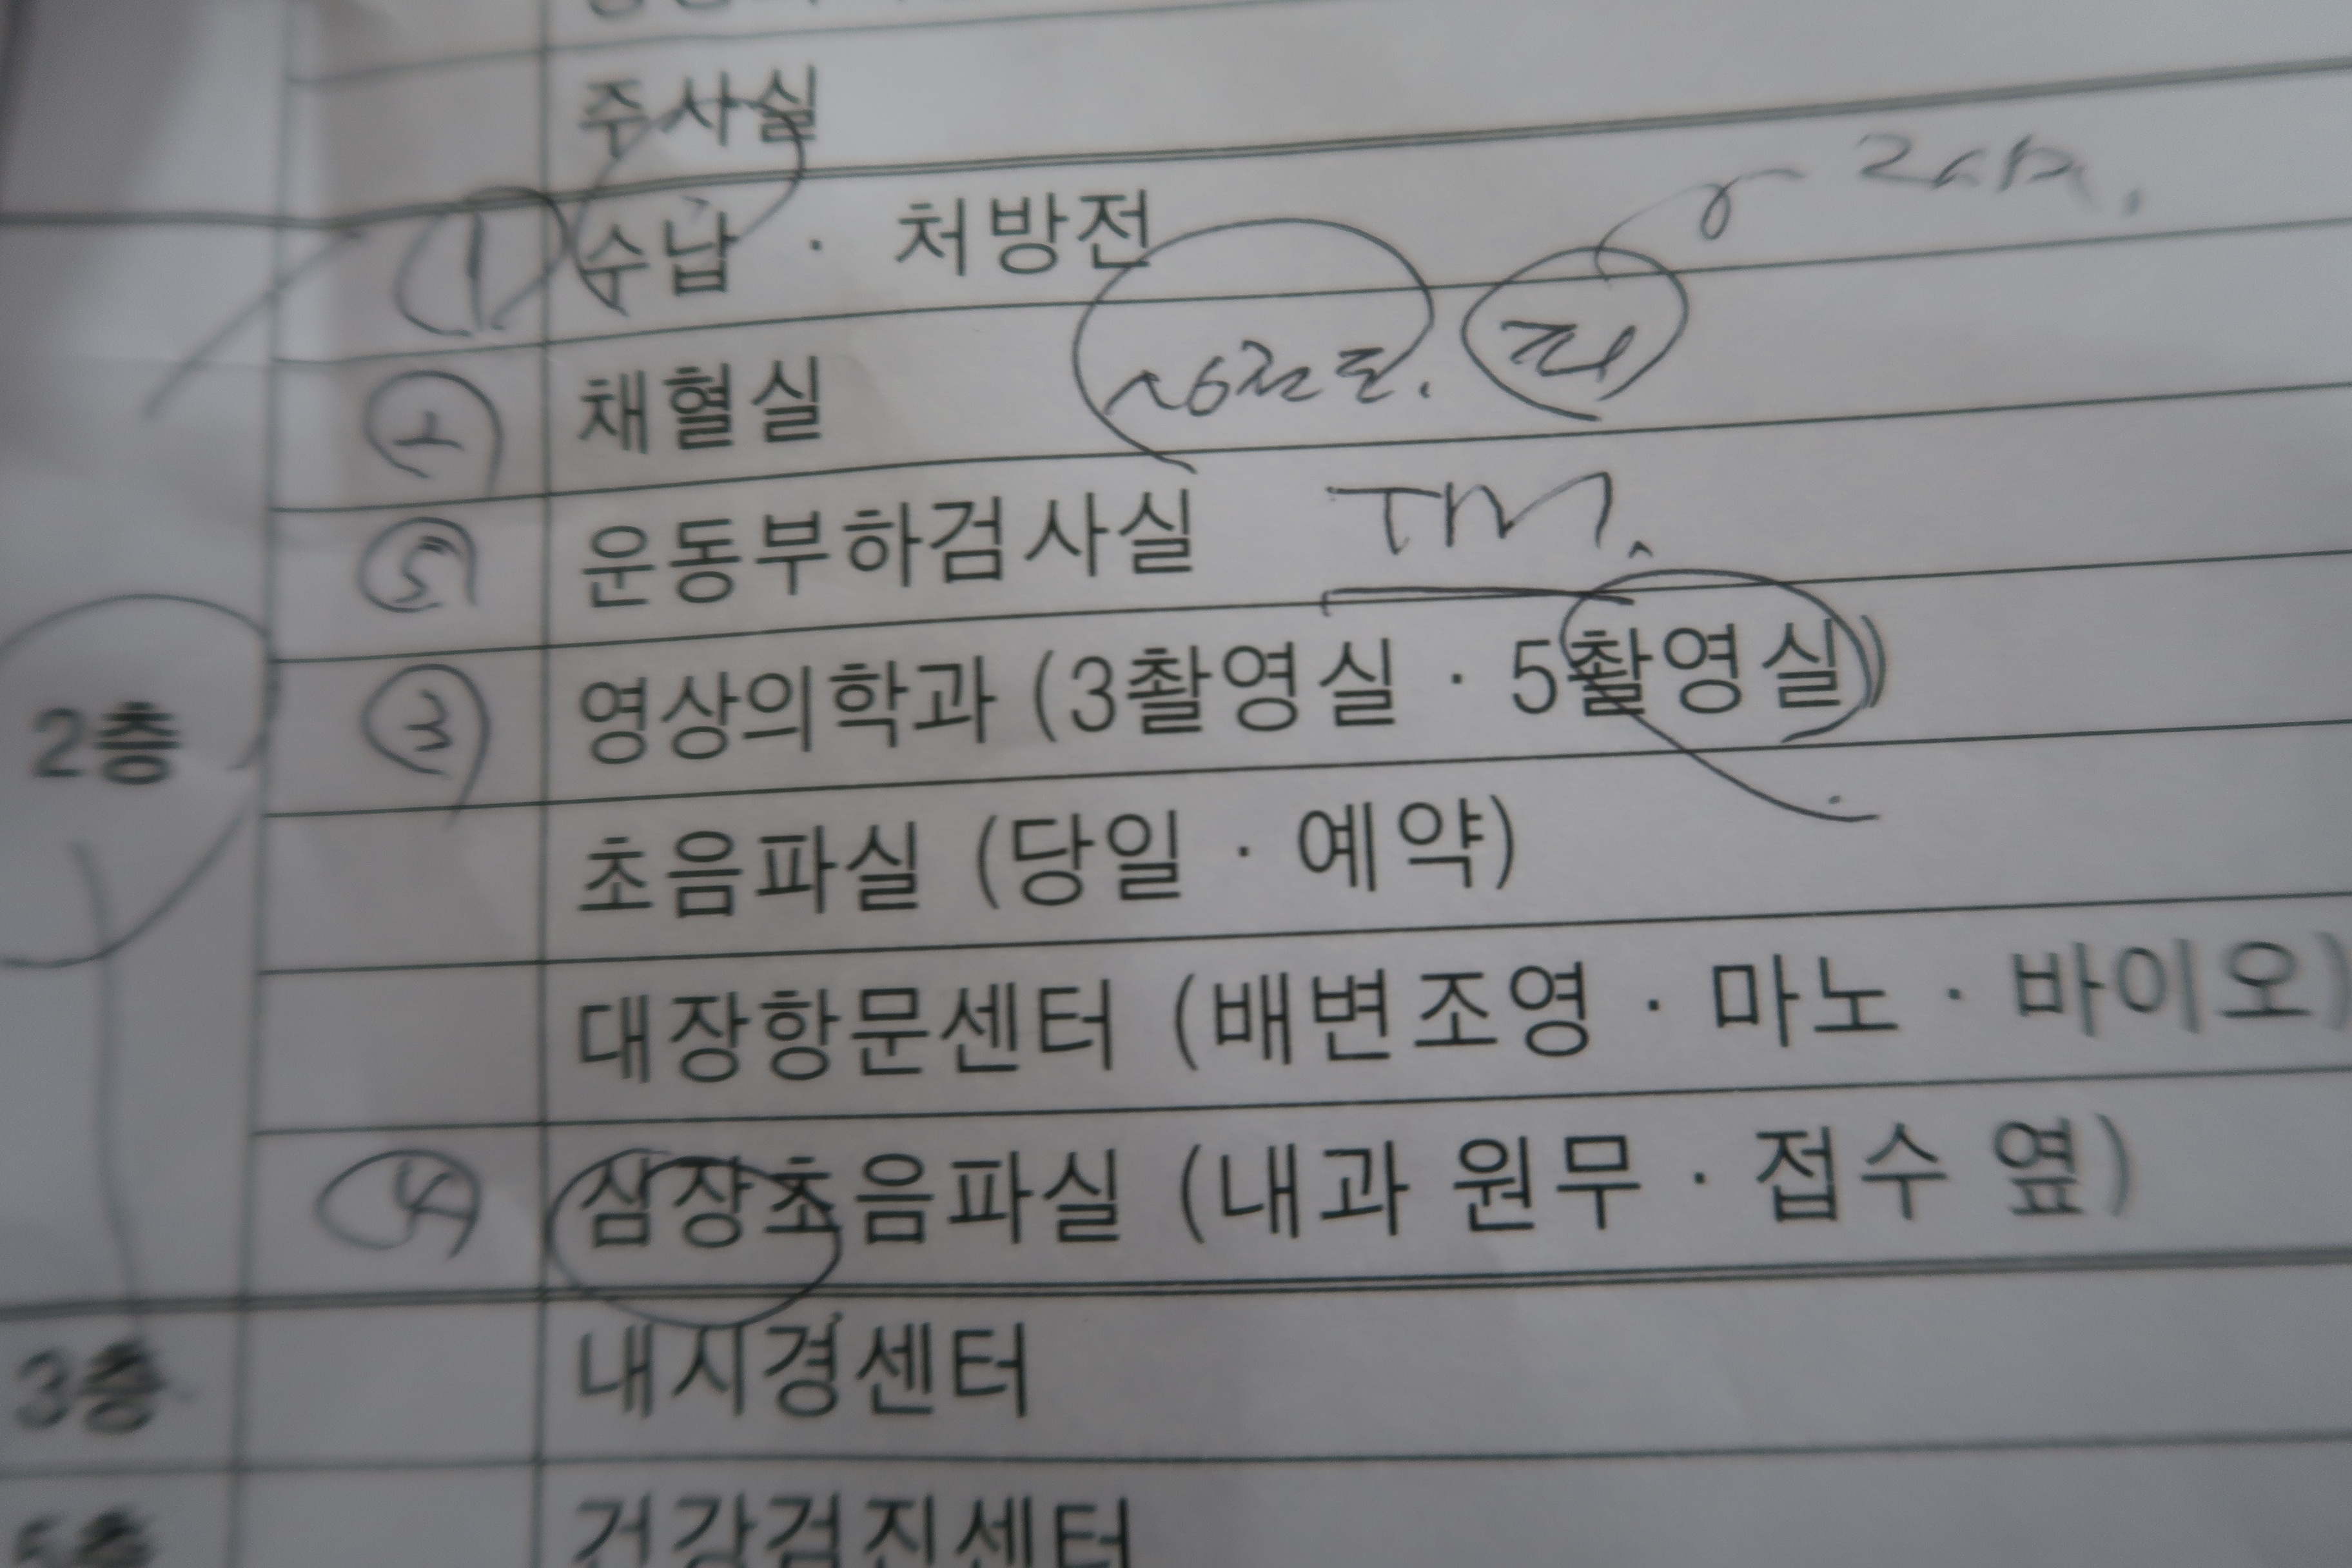 주사실
① 수납 · 처방전
② 채혈실 심전도. 피
⑤ 운동부하검사실 TM.
③ 영상의학과 (3촬영실 · 5촬영실)
2층
초음파실 (당일 · 예약)
대장항문센터 (배변조영 · 마노 · 바이오)
④ 심장초음파실 (내과 원무 · 접수 옆)
3층 내시경센터
5층 건강검진센터